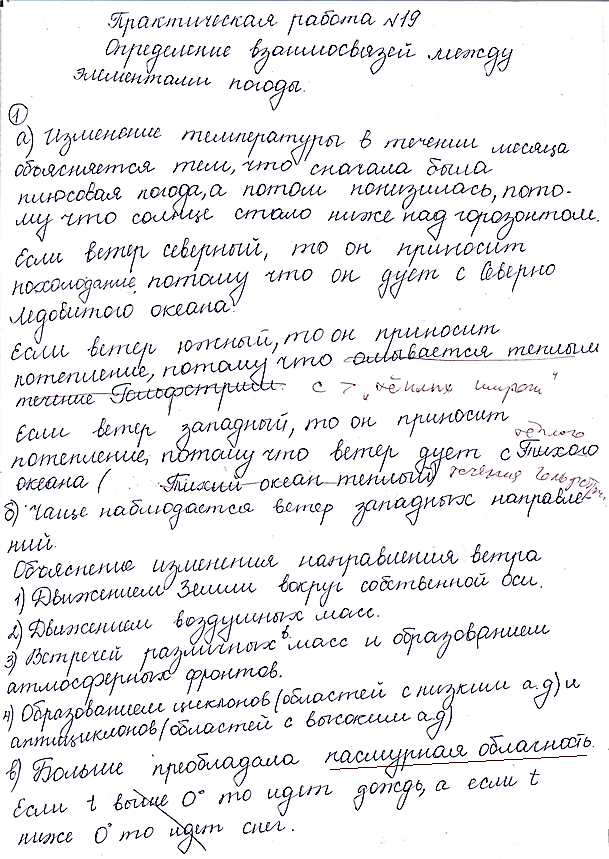 Практическая работа №19
Определение взаимосвязей между
элементами погоды.
1
а) Изменение температуры в течении месяца
объясняется тем, что сначала была
плюсовая погода, а потом понизилась, пото-
му что солнце стало ниже над горозонтом.
Если ветер северный, то он приносит
похолодание, потому что он дует с Северно
Ледовитого океана.
Если ветер южный, то он приносит
потепление, потому что омывается теплым
течение Гольфстрим. с > "тёплых широт"
Если ветер западный, то он приносит
тёплого
потепление, потому что ветер дует с Тихого
океана ( Тихий океан теплый) течения Гольфстрим.
б) Чаще наблюдается ветер западных направле-
ний.
Объяснение изменения направления ветра
1) Движением Земли вокруг собственной оси.
2) Движением воздушных масс.
3) Встречей различных в. масс и образованием
атмосферных фронтов.
4) Образованием циклонов (областей с низким а.д) и
антициклонов (областей с высоким а.д)
в) Больше преобладала пасмурная облачность.
Если t выше 0° то идет дождь, а если t
ниже 0° то идет снег.